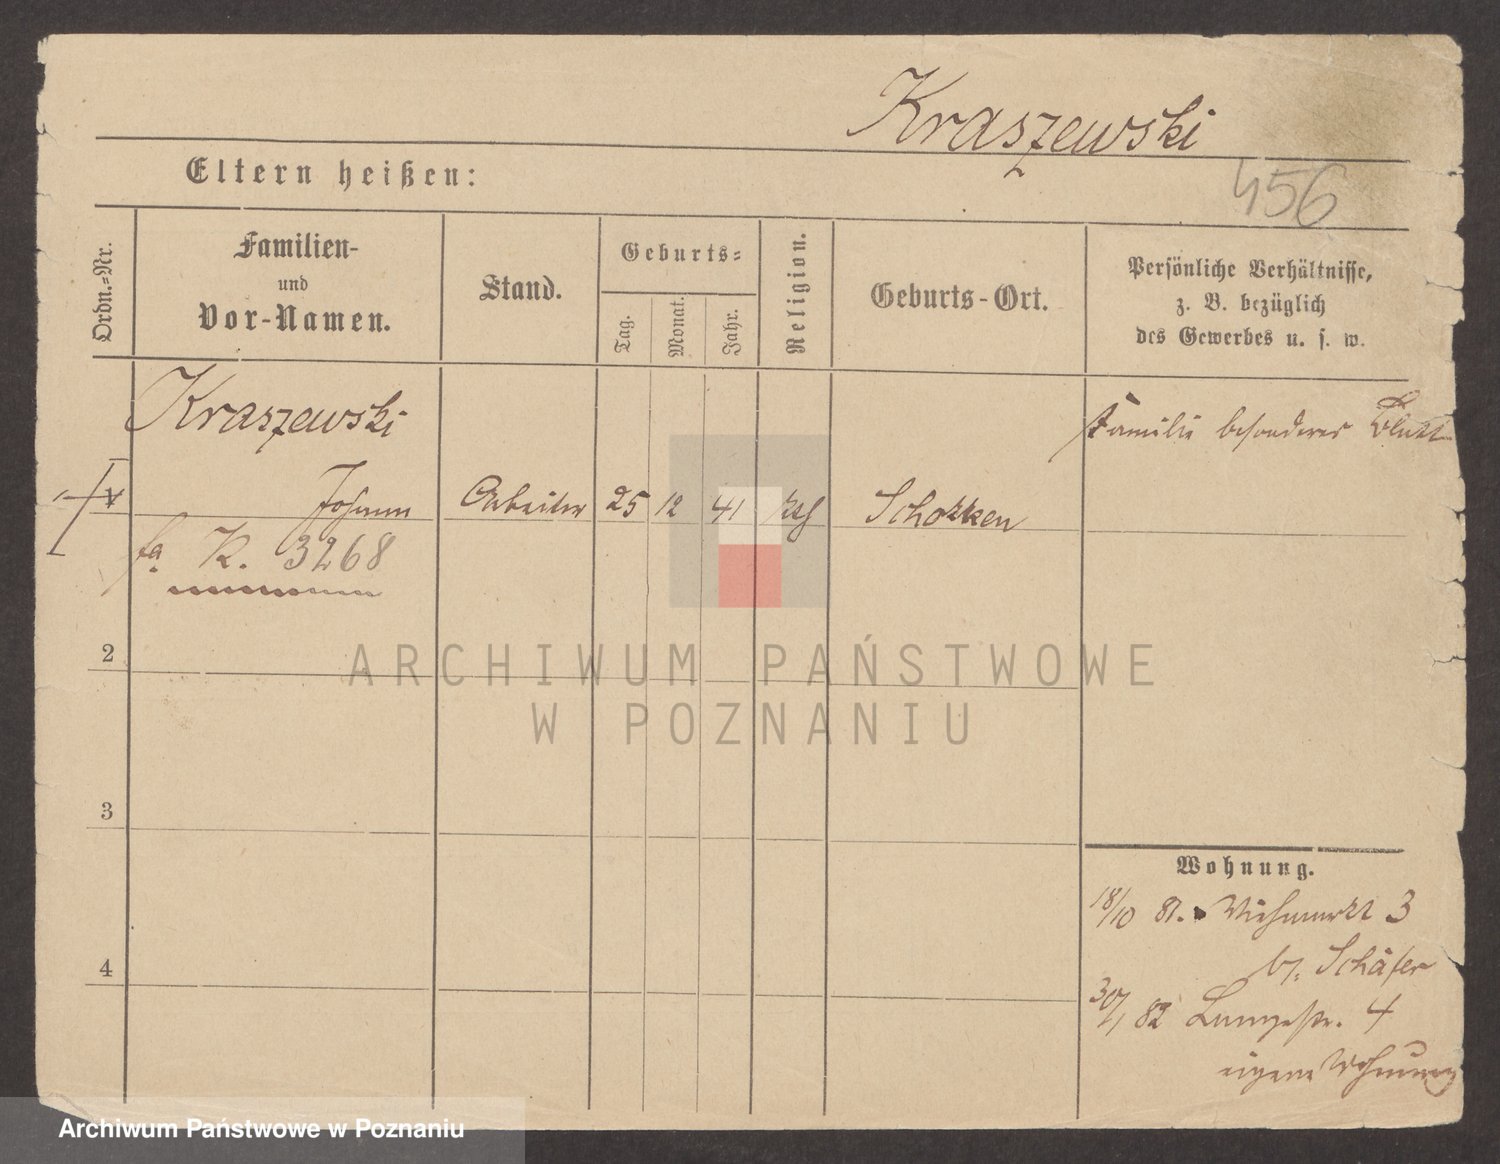 Kraszewski
456
Eltern heißen:
Ordn.=Nr.
Familien-
und
Vor-Namen.
Stand.
Geburts=
Tag.
Monat.
Jahr.
Religion.
Geburts-Ort.
Persönliche Verhältnisse,
z. B. bezüglich
des Gewerbes u. s. w.
Kraszewski
Familie besonderes Blatt
Johann Arbeiter 25 12 41 kth Schokken
fa K. 3268
2
3
4
ARCHIWUM PAŃSTWOWE
W POZNANIU
Wohnung.
18/10 81. Viehmarkt 3
b/. Schäfer
30/1 82 Langestr. 4
eigene Wohnung
Archiwum Państwowe w Poznaniu